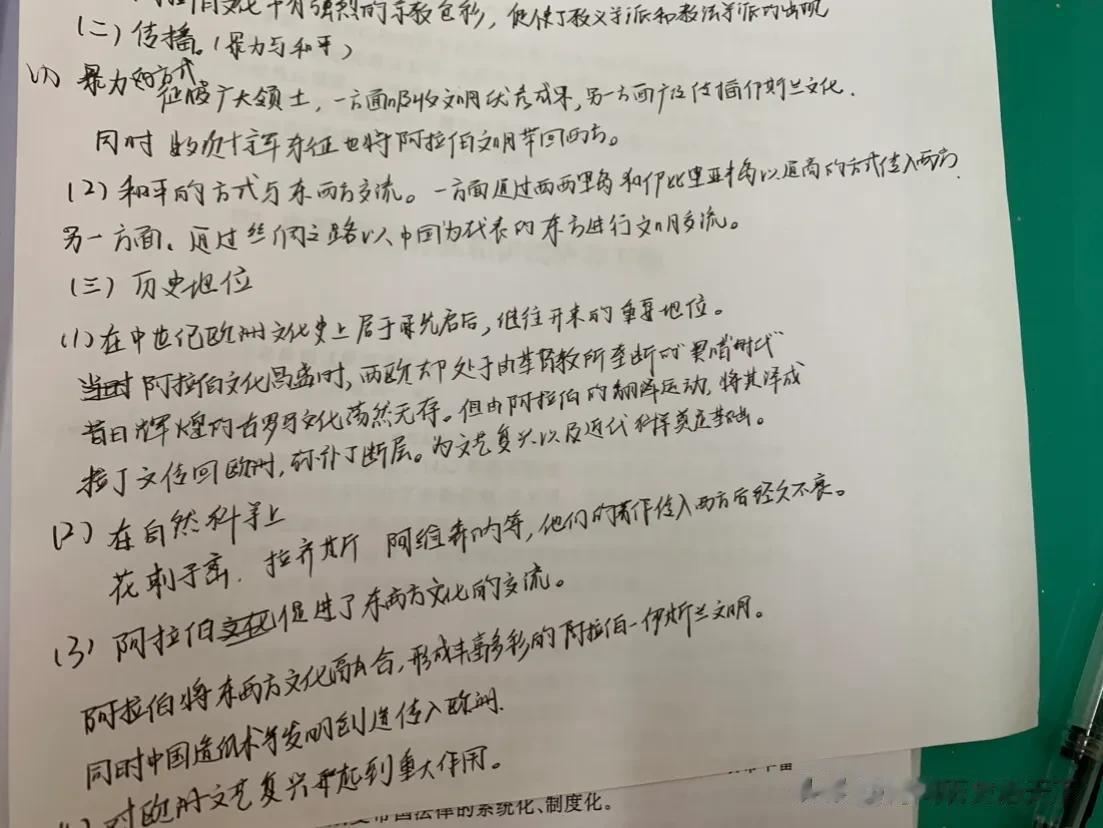 文化十分强烈的宗教色彩，促使了教义学派和教法学派的出现
(二) 传播。(暴力与和平)
(1) 暴力的方式
征服广大领土，一方面吸收文明优秀成果，另一方面广泛传播伊斯兰文化.
同时 数次十字军东征也将阿拉伯文明带回西方。
(2) 和平的方式与东西方交流。一方面通过西西里岛和伊比利亚半岛以通商的方式传入西方.
另一方面、通过丝绸之路以中国为代表的东方进行文明交流。
(三) 历史地位
(1) 在中世纪欧洲文化史上居于承先启后，继往开来的重要地位。
当时 阿拉伯文化昌盛时，西欧却处于由基督教所垄断的"黑暗"时代
昔日辉煌的古罗马文化荡然无存。但由阿拉伯的翻译运动，将其译成
拉丁文传回欧洲，弥补了断层。为文艺复兴以及近代科学奠定基础。
(2) 在自然科学上
花剌子密. 拉齐 阿维森纳等，他们的著作传入西方后经久不衰。
(3) 阿拉伯文化促进了东西方文化的交流。
阿拉伯将东西方文化融合，形成丰富多彩的阿拉伯－伊斯兰文明。
同时中国造纸术等发明创造传入欧洲.
对欧洲文艺复兴开起到重大作用。
帝国法律的系统化、制度化。